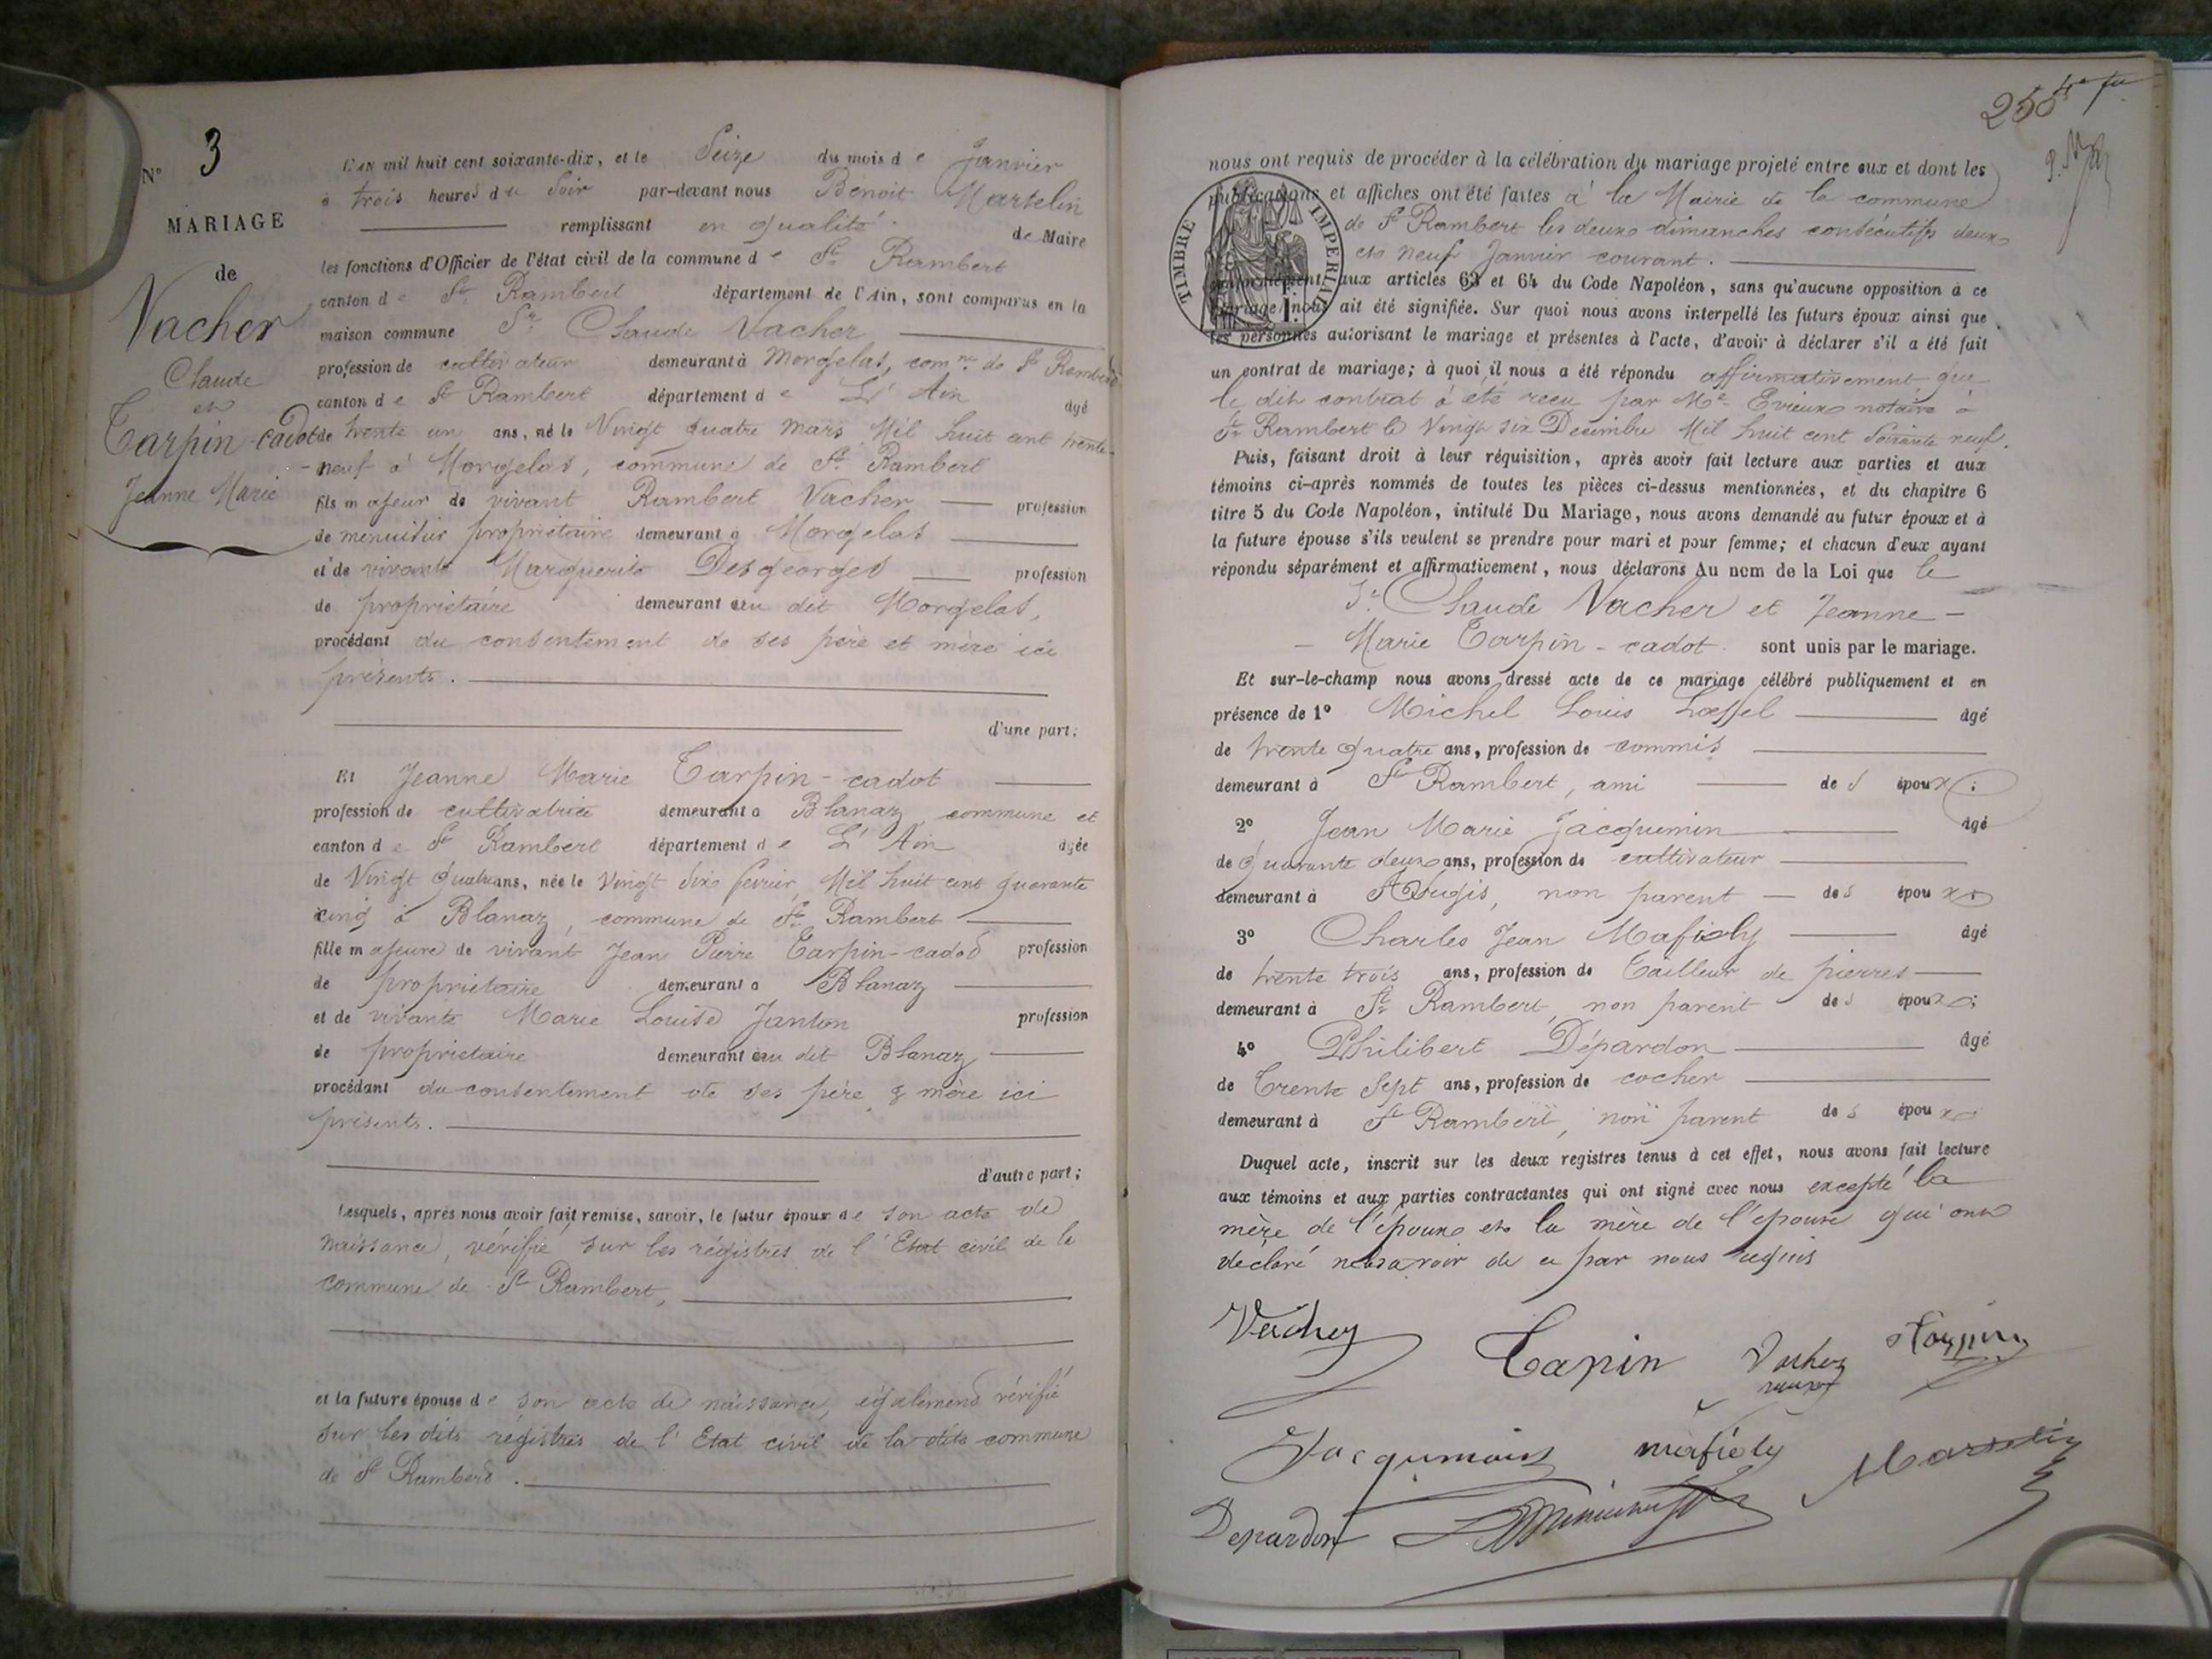 N° 3
MARIAGE
de
Vacher
Claude
et
Tarpin-cadot
Jeanne Marie
L'AN mil huit cent soixante-dix, et le Seize du mois de Janvier
à trois heures du Soir par-devant nous Benoit Martelin
remplissant en qualité de Maire
les fonctions d'Officier de l'état civil de la commune de St Rambert
canton de St Rambert département de l'Ain, sont comparus en la
maison commune Sr Claude Vacher
profession de cultivateur demeurant à Morgelas, comne de St Rambert
canton de St Rambert département de L'Ain âgé
de trente un ans, né le Vingt quatre Mars Mil huit cent trente-
-neuf à Morgelas, commune de St Rambert
fils majeur de vivant Rambert Vacher profession
de menuisier propriétaire demeurant à Morgelas
et de vivante Marguerite Desgeorges profession
de propriétaire demeurant au dit Morgelas,
procédant du consentement de ses père et mère ici
présents.
d'une part;
Et Jeanne Marie Tarpin-cadot
profession de cultivatrice demeurant à Blanaz, commune et
canton de St Rambert département de L'Ain âgée
de Vingt quatre ans, née le Vingt Six fevrier Mil huit cent quarante
cinq à Blanaz, commune de St Rambert
fille majeure de vivant Jean Pierre Tarpin-cadot profession
de propriétaire demeurant à Blanaz
et de vivante Marie Louise Janton profession
de propriétaire demeurant au dit Blanaz
procédant du consentement de ses père & mère ici
présents.
d'autre part;
Lesquels, après nous avoir fait remise, savoir, le futur époux de son acte de
naissance, vérifié sur les régistres de l'Etat civil de la
commune de St Rambert,
et la future épouse de son acte de naissance, également vérifié
sur les dits régistres de l'Etat civil de la dite commune
de St Rambert.
250
nous ont requis de procéder à la célébration du mariage projeté entre eux et dont les
publications et affiches ont été faites à la Mairie de la commune
de St Rambert les deux dimanches consécutifs deux
et neuf Janvier courant.
TIMBRE IMPERIAL
conformément aux articles 63 et 64 du Code Napoléon, sans qu'aucune opposition à ce
mariage nous ait été signifiée. Sur quoi nous avons interpellé les futurs époux ainsi que
les personnes autorisant le mariage et présentes à l'acte, d'avoir à déclarer s'il a été fait
un contrat de mariage; à quoi il nous a été répondu affirmativement que
le dit contrat a été reçu par Me Evieux notaire à
St Rambert le Vingt six Décembre Mil huit cent Soixante neuf.
Puis, faisant droit à leur réquisition, après avoir fait lecture aux parties et aux
témoins ci-après nommés de toutes les pièces ci-dessus mentionnées, et du chapitre 6
titre 5 du Code Napoléon, intitulé Du Mariage, nous avons demandé au futur époux et à
la future épouse s'ils veulent se prendre pour mari et pour femme; et chacun d'eux ayant
répondu séparément et affirmativement, nous déclarons Au nom de la Loi que le
Sr Claude Vacher et Jeanne-
-Marie Tarpin-cadot sont unis par le mariage.
Et sur-le-champ nous avons dressé acte de ce mariage célébré publiquement et en
présence de 1° Michel Louis Lœffel âgé
de trente quatre ans, profession de commis
demeurant à St Rambert, ami des époux;
2° Jean Marie Jacquemin âgé
de quarante deux ans, profession de cultivateur
demeurant à non parent des époux;
3° Charles Jean Mafioly âgé
de trente trois ans, profession de Tailleur de pierres
demeurant à St Rambert, non parent des époux;
4° Philibert Dépardon âgé
de Trente Sept ans, profession de cocher
demeurant à St Rambert, non parent des époux
Duquel acte, inscrit sur les deux registres tenus à cet effet, nous avons fait lecture
aux témoins et aux parties contractantes qui ont signé avec nous excepté la
mère de l'époux et la mère de l'épouse qui ont
déclaré ne savoir de ce par nous requis
Vacher Tarpin Vacher Tarpin
Jacquemin mafioly Martelin
Depardon